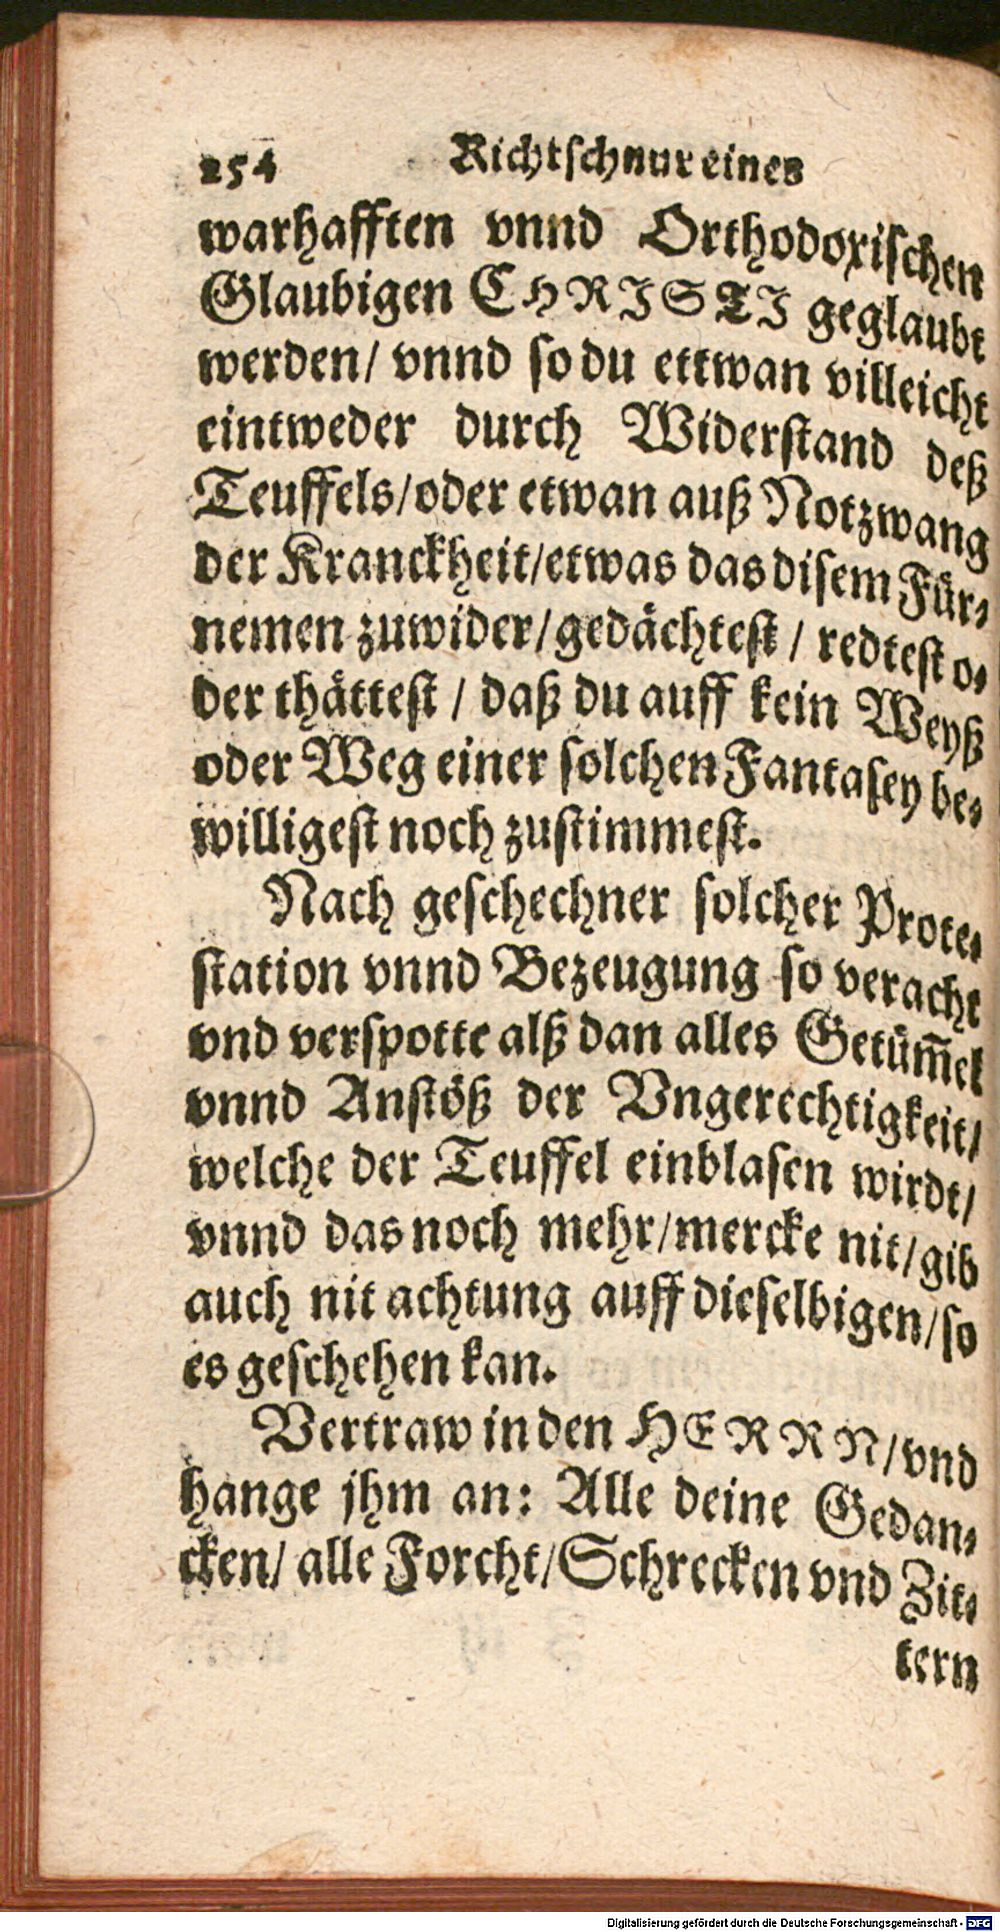 254 Richtschnur eines
warhafften vnnd Orthodoxischen
Glaubigen CHRISTI geglaubt
werden/ vnnd so du ettwan villeicht
eintweder durch Widerstand deß
Teuffels/oder etwan auß Notzwang
der Kranckheit/etwas das disem Für-
nemen zuwider/gedächtest / redtest o-
der thättest / daß du auff kein Weyß
oder Weg einer solchen Fantasey be-
willigest noch zustimmest.
Nach geschechner solcher Prote-
station vnnd Bezeugung so veracht
vnd verspotte alß dan alles Getüm̄el
vnnd Anstöß der Vngerechtigkeit/
welche der Teuffel einblasen wirdt/
vnnd das noch mehr/mercke nit/gib
auch nit achtung auff dieselbigen/so
es geschehen kan.
Vertraw in den HERRN/vnd
hange jhm an: Alle deine Gedan-
cken/ alle Forcht/Schrecken vnd Zit-
tern
Digitalisierung gefördert durch die Deutsche Forschungsgemeinschaft - DFG